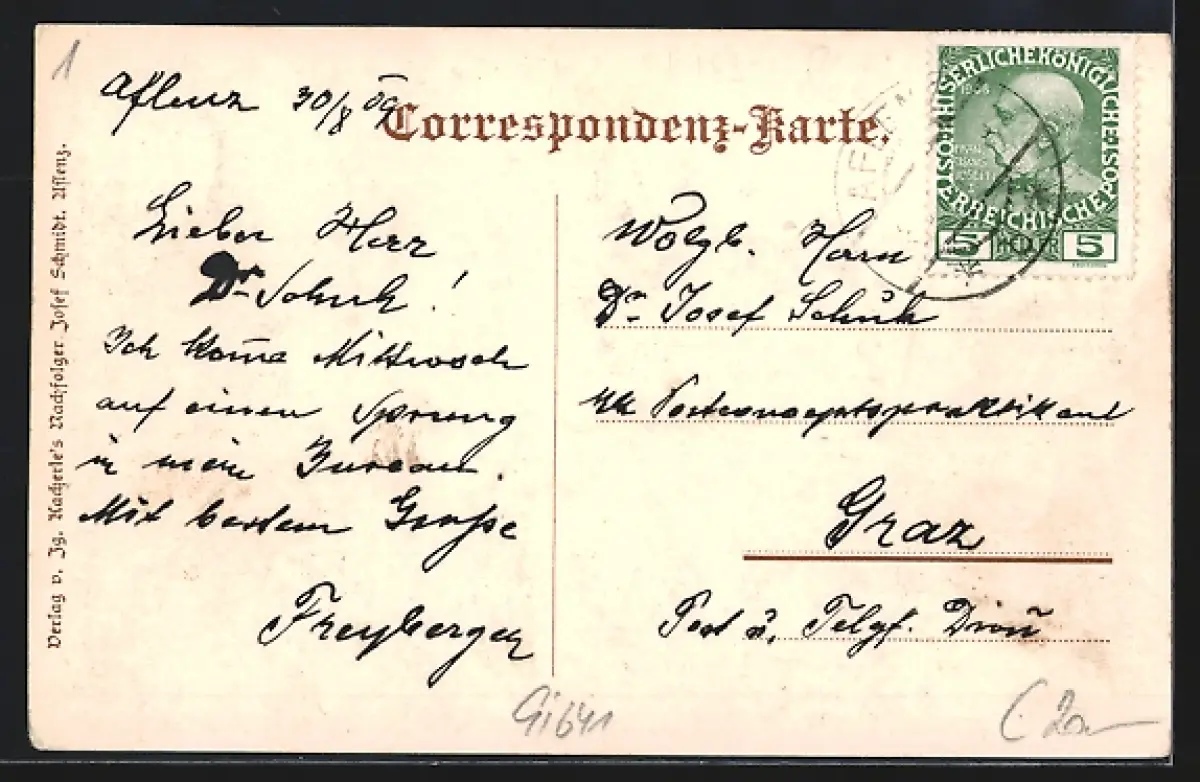 1
Aflenz 30/8 09
Correspondenz-Karte.
Lieber Herr
Dr. Schuh!
Ich kom̄e Mittwoch
auf einen Sprung
in mein Bureau.
Mit bestem Gruße
Freyberger
Wolgb. Herrn
Dr. Josef Schuh
kk Postconceptspraktikant
Graz
Post u. Telgf. Dion
KAISERLICHE KÖNIGLICHE ÖSTERREICHISCHE POST
1908
FRANZ JOSEF I
5 HELLER 5
Verlag v. Ig. Kacherle's Nachfolger Josef Schmidt. Aflenz.
Gi641